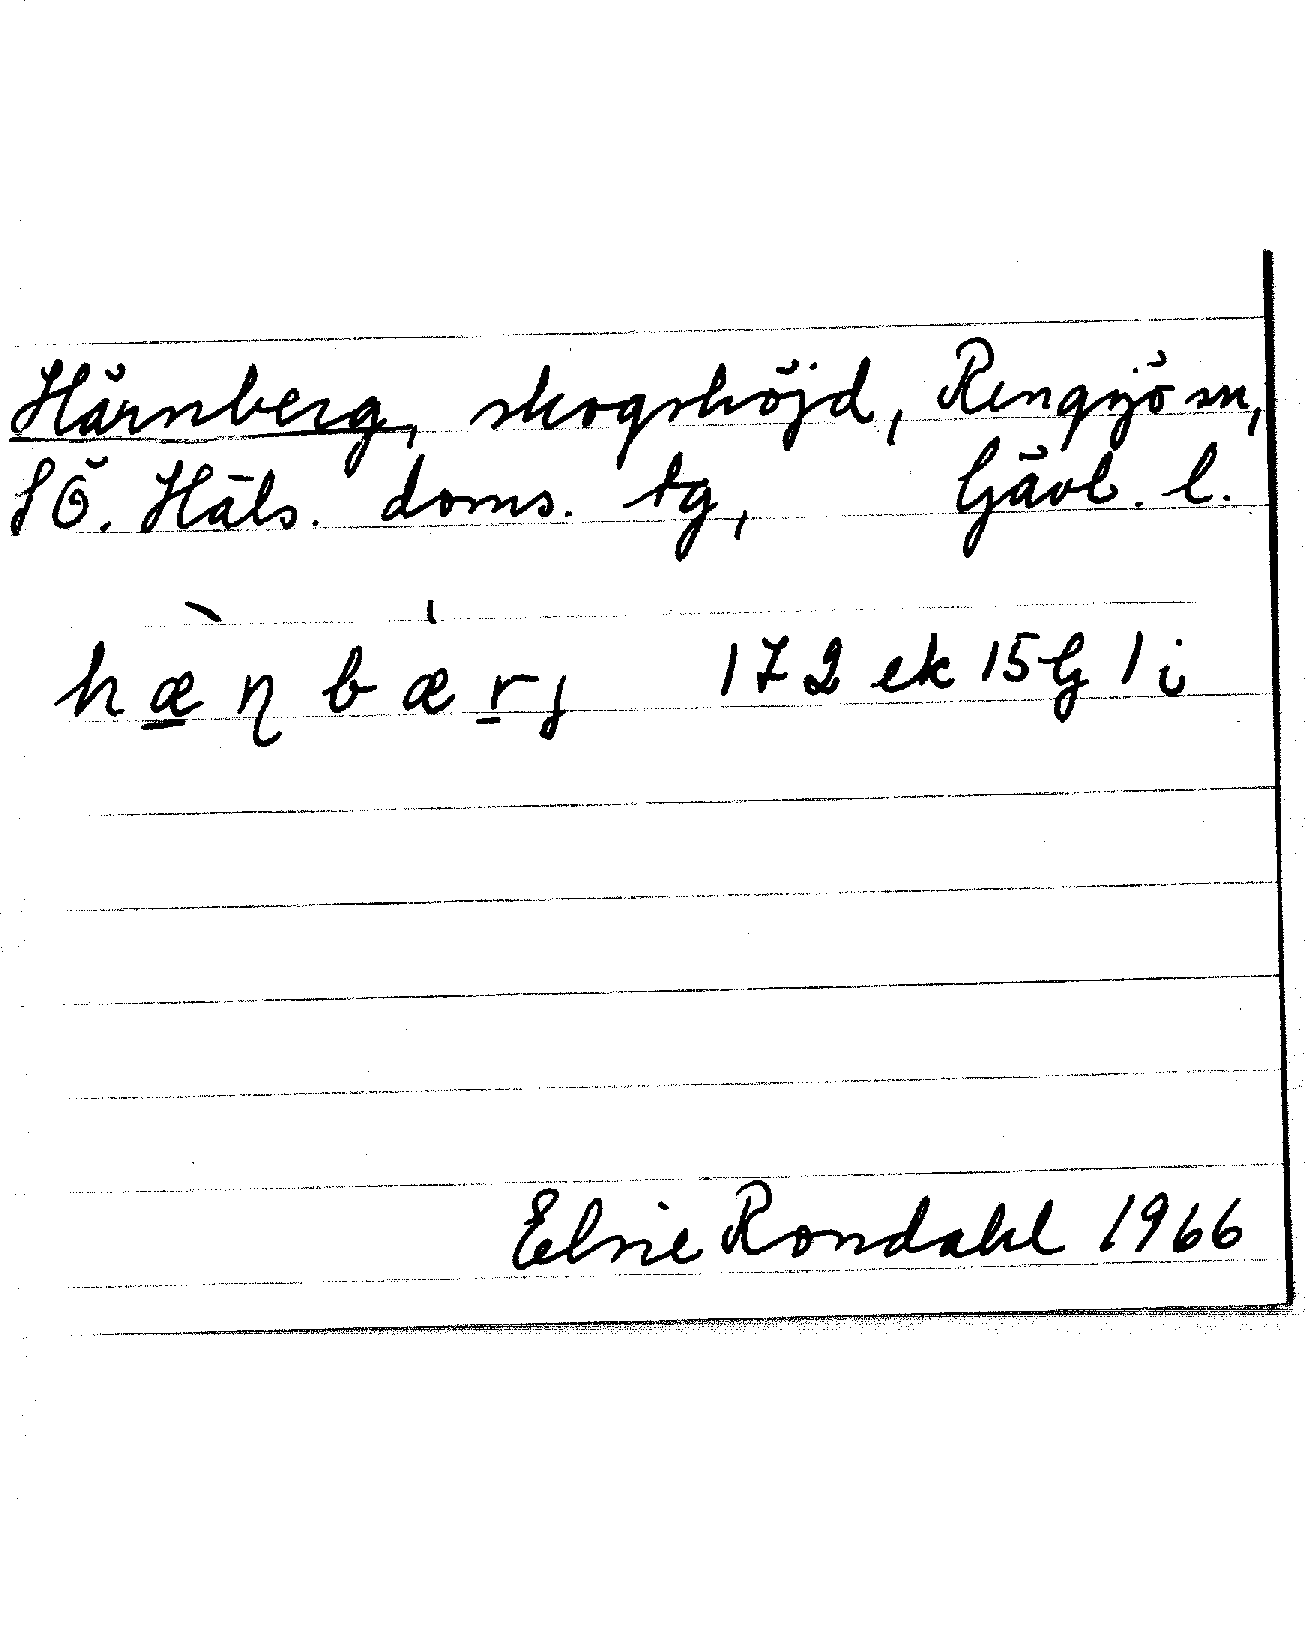 Härnberg, skogshöjd, Rengsjö sn,
SÖ. Häls. doms. tg, Gävl. l.
hæ̀ɳbæ̍rj 172 ek 15 G 1 i
Elsie Rondahl 1966